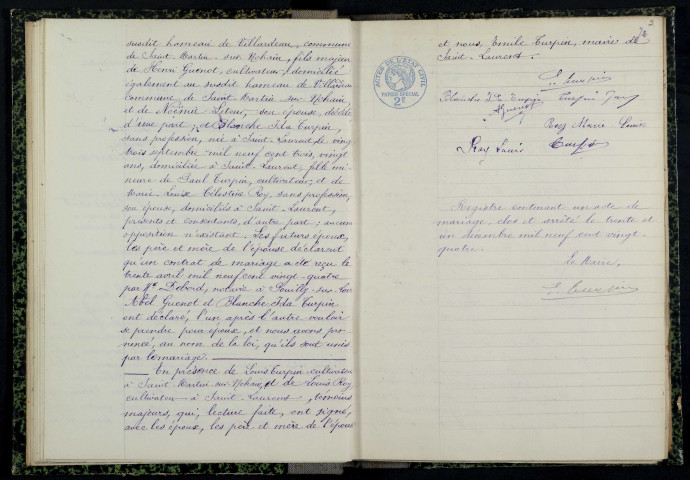 susdit hameau de Villardeau, commune
de Saint-Martin-sur-Nohain, fils majeur
de Henri Guenot, cultivateur, domicilié
également au susdit hameau de Villardeau
commune de Saint-Martin-sur-Nohain,
et de Noëmie Leteur, son épouse, décédée
d'une part; et Blanche Ida Turpin,
sans profession, née à Saint-Laurent, le vingt
trois septembre mil neuf cent trois, vingt
ans, domiciliée à Saint-Laurent, fille mi-
neure de Paul Turpin, cultivateur, et de
Marie-Louise Célestine Roy, sans profession,
son épouse, domiciliés à Saint-Laurent,
présents et consentants, d'autre part; aucune
opposition n'existant. Les futurs époux,
les père et mère de l'épouse déclarent
qu'un contrat de mariage a été reçu le
trente avril mil neuf cent vingt-quatre
par Me Debord, notaire à Pouilly-sur-Loire
Abel Guenot et Blanche Ida Turpin
ont déclaré, l'un après l'autre vouloir
se prendre pour époux, et nous avons pro-
noncé, au nom de la loi, qu'ils sont unis
par le mariage.
En présence de Louis Turpin cultivateur
à Saint-Martin-sur-Nohain, et de Louis Roy
cultivateur à Saint-Laurent, témoins
majeurs, qui, lecture faite, ont signé,
avec les époux, les père et mère de l'épouse
2
et nous, Emile Turpin, maire de
Saint-Laurent.
ACTES DE L'ÉTAT CIVIL
PAPIER SPÉCIAL
2F
E Turpin
Blanche Ida Turpin Turpin
A Guenot
Roy Marie Louise
Roy Louis Turpin
Registre contenant un acte de
mariage, clos et arrêté le trente et
un décembre mil neuf cent vingt-
quatre.
Le Maire,
E Turpin